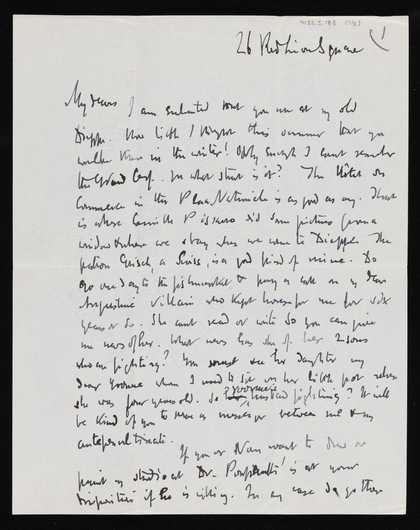 26 Red Lion Square
My dears I am enchanted that you are at my old
Dieppe. How little I thought this summer that you
would be there in the winter! Oddly enough I can't remember
the Grand Cerf. In what street is it? The Hôtel du
Commerce in the Place Nationale is as good as any. There
is where Camille Pissarro did some pictures from a
window & where we stay when we come to Dieppe. The
patron Grisch, a Suiss, is a good friend of mine. Do
go one day to the fishmarket & pay a call on my dear
Augustine Villain who kept house for me for six
years or so. She can't read or write so you can give
me news of her. What news has she of her 2 sons
who are fighting? You must see her daughter my
dear Yvonne whom I used to sit on her little pot when
she was four years old. Is Yvonne's husband fighting? It will
be kind of you to serve as messenger between me & my
If you or Nan want to draw or
paint my studio at Dr. is at your
disposition if he is willing. In any case do go there